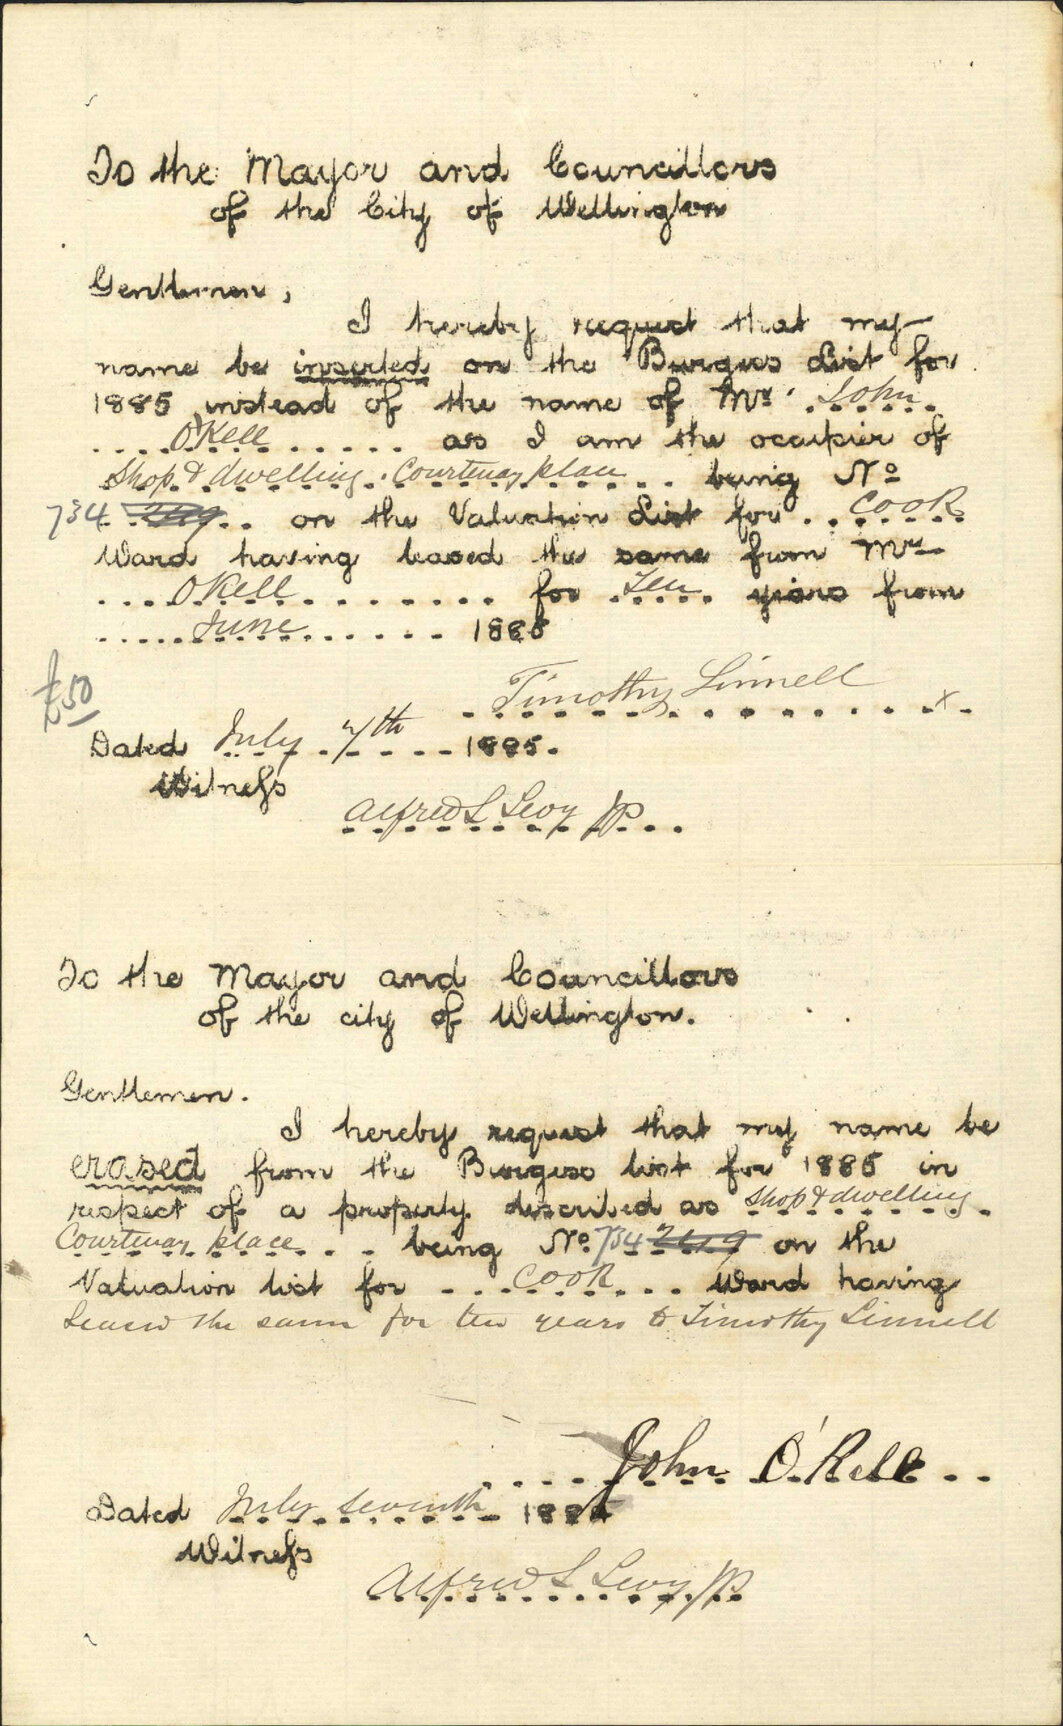 To the Mayor and Councillors
of the City of Wellington
Gentlemen,
I hereby request that my
name be inserted on the Burgess List for
1885 instead of the name of Mr. John
O'Kell as I am the occupier of
Shop & dwelling. Courtenay place being No
734 on the Valuation List for Cook
Ward having leased the same from Mr
O'Kell for Ten years from
June 1885
£50
Timothy Linnell x
Dated July 7th 1885.
Witness
Alfred S Levy JP
To the Mayor and Councillors
of the city of Wellington.
Gentlemen.
I hereby request that my name be
erased from the Burgess list for 1885 in
respect of a property described as Shop & dwelling
Courtenay place being No 734 on the
Valuation list for Cook Ward having
Leased the same for ten years to Timothy Linnell
John O'Kell
Dated July Seventh 188
Witness
Alfred S Levy JP